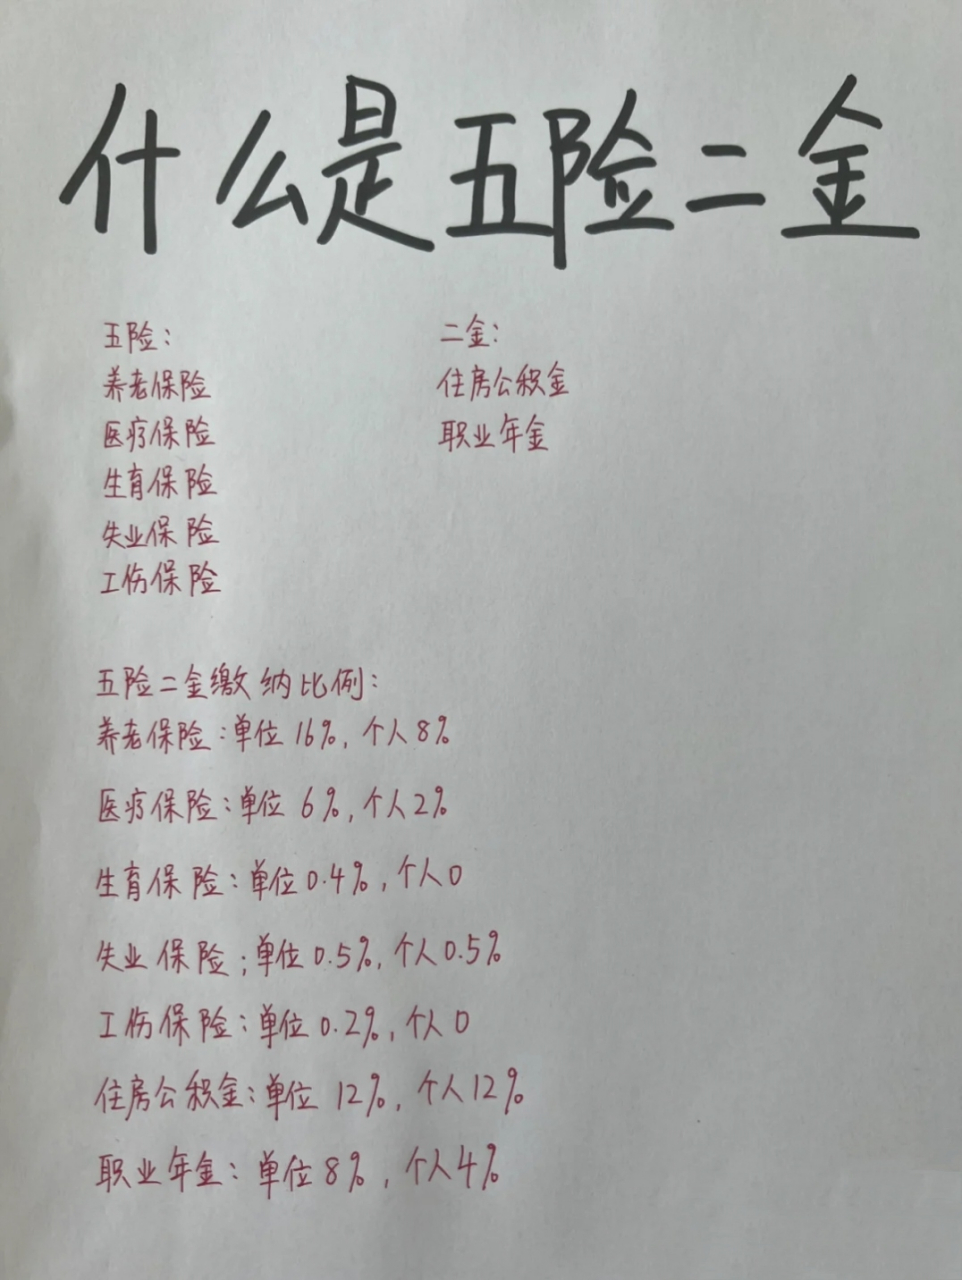 什么是五险二金
五险:
养老保险
医疗保险
生育保险
失业保险
工伤保险
二金:
住房公积金
职业年金
五险二金缴纳比例:
养老保险:单位16%,个人8%
医疗保险:单位6%,个人2%
生育保险:单位0.4%,个人0
失业保险;单位0.5%,个人0.5%
工伤保险:单位0.2%,个人0
住房公积金:单位12%,个人12%
职业年金:单位8%,个人4%